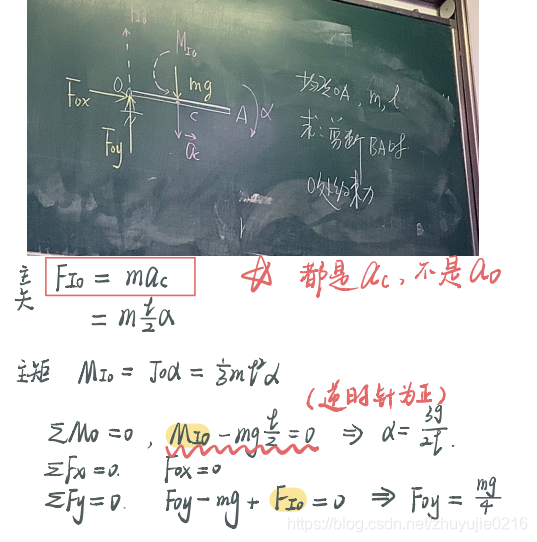 F_IO
M_IO
mg
O
F_ox
F_oy
C
a_c
A
α
均质OA, m, l
求: 剪断BA时
O处约束力
主矢 F_IO = ma_c
= m l/2 α
都是 a_c, 不是 a_o
主矩 M_IO = J_oα = 1/3 ml²α
(逆时针为正)
ΣM_o=0, M_IO - mg l/2 = 0 ⇒ α = 3g/2l.
ΣF_x=0. F_ox=0
ΣF_y=0. F_oy - mg + F_IO = 0 ⇒ F_oy = mg/4
https://blog.csdn.net/zhuyujie0216